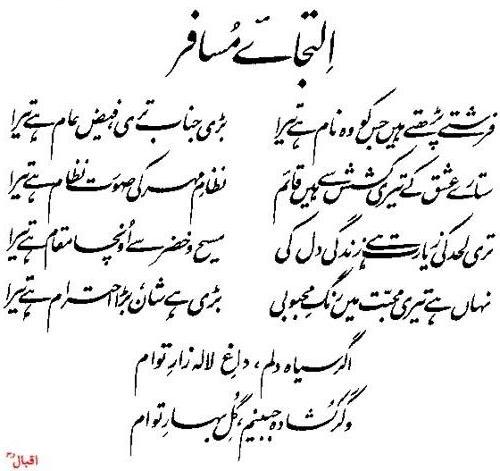 اِلتجائے مُسافر
فرشتے پڑھتے ہیں جس کو وہ نام ہے تیرا بڑی جناب تری، فیض عام ہے تیرا
ستارے عشق کے تیری کشش سے ہیں قائم نظامِ مہر کی صورت نظام ہے تیرا
تری لحد کی زیارت ہے زندگی دل کی مسیح و خضر سے اُونچا مقام ہے تیرا
نہاں ہے تیری محبّت میں رنگِ محبوبی بڑی ہے شان، بڑا احترام ہے تیرا
اگر سیاہ دلم، داغِ لالہ زارِ توام
وگر کُشادہ جبینم، گُلِ بہارِ توام
اقبالؒ